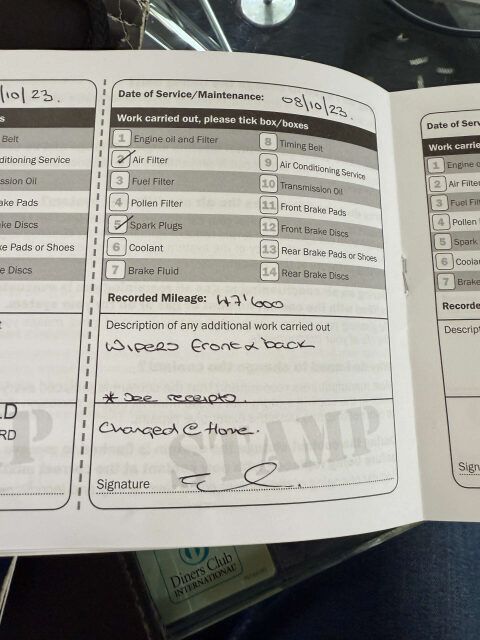 /10/23.
s
Belt
ditioning Service
ssion Oil
ake Pads
ake Discs
ke Pads or Shoes
e Discs
t
LD
RD
P
Date of Service/Maintenance: 08/10/23.
Work carried out, please tick box/boxes
1 Engine oil and Filter
2 Air Filter
3 Fuel Filter
4 Pollen Filter
5 Spark Plugs
6 Coolant
7 Brake Fluid
8 Timing Belt
9 Air Conditioning Service
10 Transmission Oil
11 Front Brake Pads
12 Front Brake Discs
13 Rear Brake Pads or Shoes
14 Rear Brake Discs
Recorded Mileage: 47'600
Description of any additional work carried out
Wipers front & back
* See receipts.
Changed @ Home.
STAMP
Signature
Date of Serv
Work carrie
1 Engine o
2 Air Filter
3 Fuel Filt
4 Pollen
5 Spark
6 Coola
7 Brake
Recorde
Descript
Sign
Diners Club
INTERNATIONAL